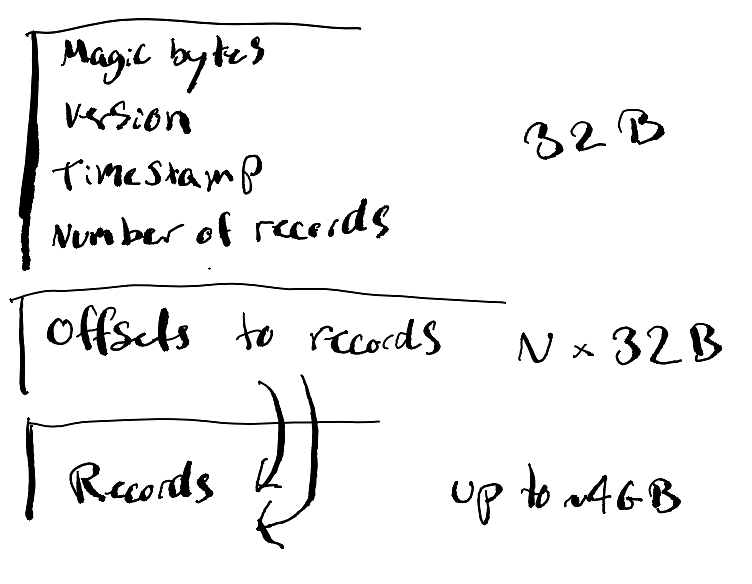 Magic bytes
Version
32 B
Timestamp
Number of records
Offsets to records N × 32 B
Records up to ~4GB